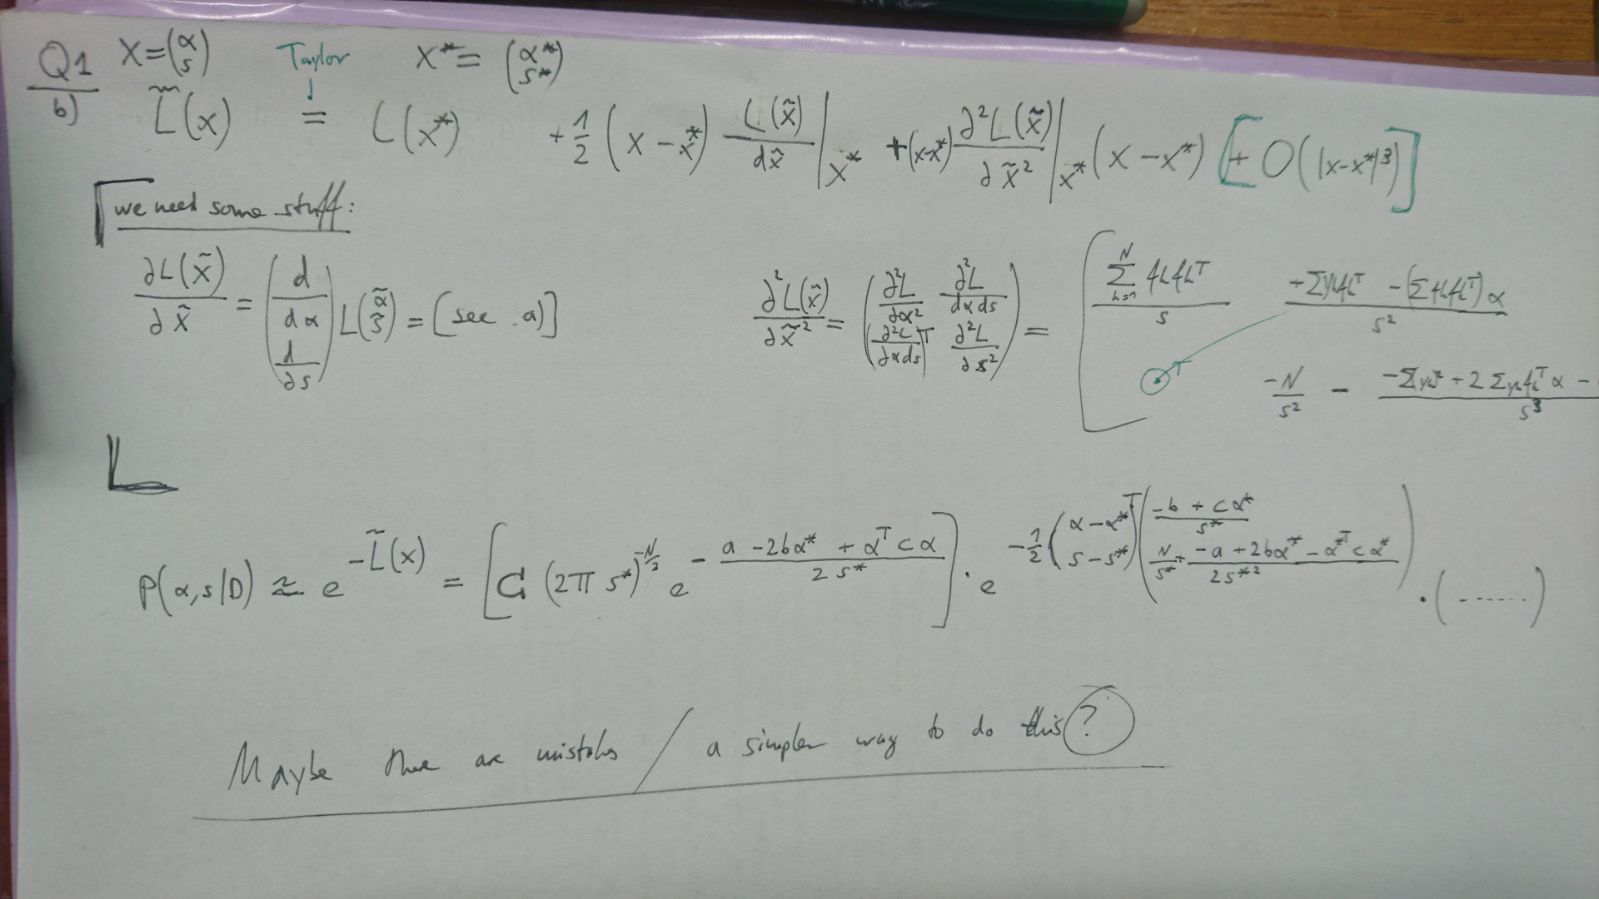 Q1 b) X = (α s) Taylor ↓ X* = (α* s*)
L̃(x) = L(x*) + 1/2 (x - x*) L(x̃)/dx̃ |x* + (x-x*) ∂²L(x̃)/∂x̃² |x* (x - x*) [+ O(|x-x*|³)]
we need some stuff:
∂L(x̃)/∂x̃ = (d/dα d/∂s) L(α̃ s̃) = [see a)]
∂²L(x̃)/∂x̃² = (∂²L/∂α² ∂²L/dαds (∂²L/∂αds)ᵀ ∂²L/∂s²) = ( Σ_{k=1}^N fkfkᵀ / s +Σykfkᵀ - (Σfkfkᵀ)α / s²
T -N/s² - -Σyk² + 2Σykfkᵀα - / s³
P(α,s|D) ≈ e^{-L̃(x)} = [C (2π s*)^{-N/2} e^{- (a - 2bα* + αᵀcα)/(2s*)}] · e^{-1/2 (α-α* s-s*)ᵀ ((-b + cα*)/s* N/s* + (-a + 2bα* - α*ᵀcα*)/(2s*²))} · (......)
Maybe there are mistakes / a simpler way to do this ?